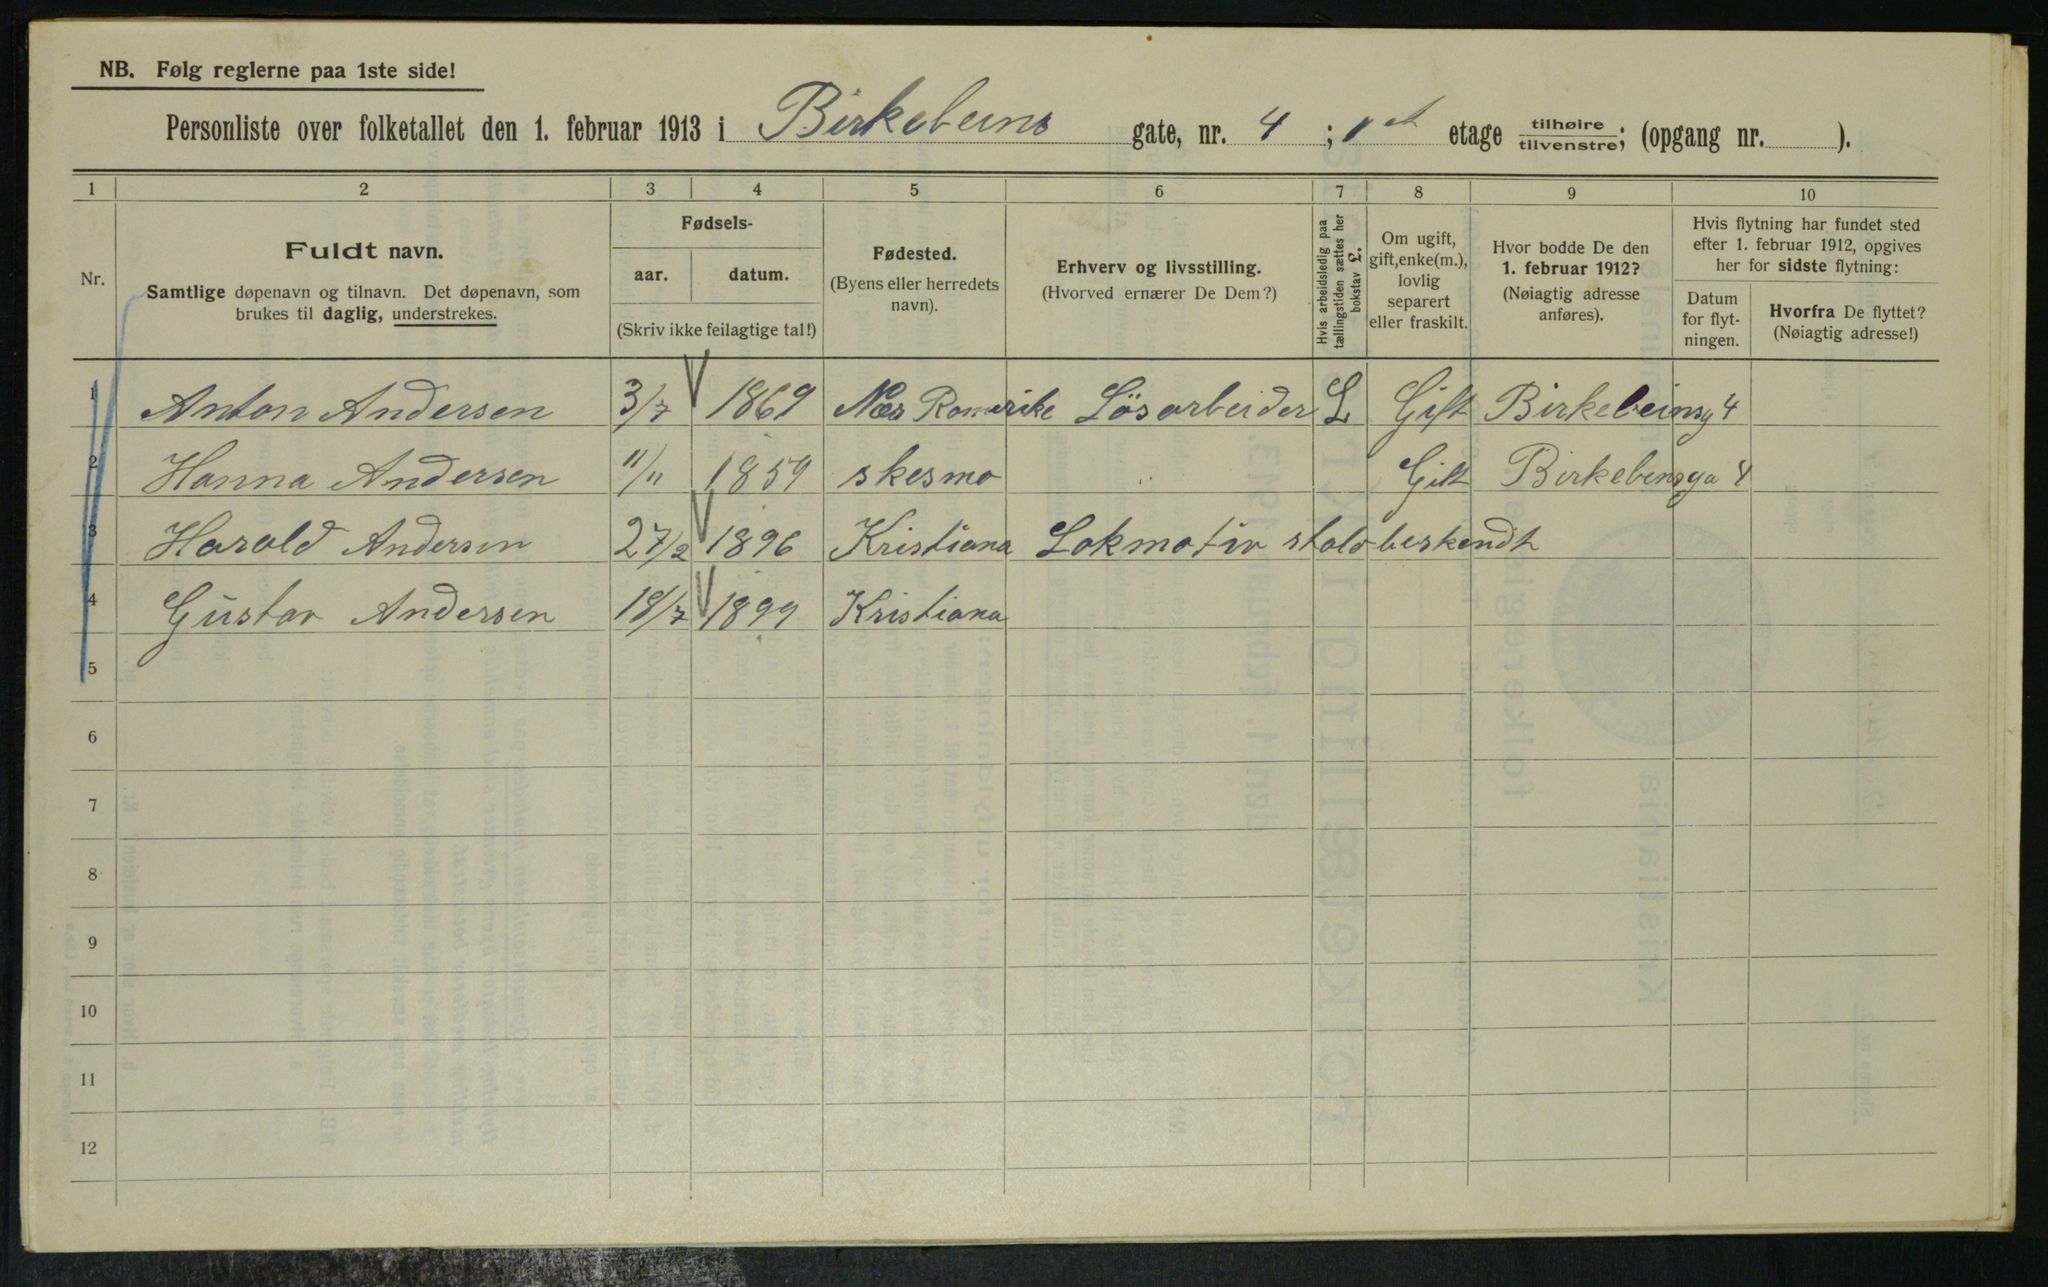 NB. Følg reglerne paa 1ste side!
Personliste over folketallet den 1. februar 1913 i Birkebeins gate, nr. 4 ; 1 et etage tilhøire tilvenstre; (opgang nr. ).
1 2 3 4 5 6 7 8 9 10
Nr.
Fuldt navn.
Samtlige døpenavn og tilnavn. Det døpenavn, som
brukes til daglig, understrekes.
Fødsels-
aar. datum.
(Skriv ikke feilagtige tal!)
Fødested.
(Byens eller herredets
navn).
Erhverv og livsstilling.
(Hvorved ernærer De Dem?)
Hvis arbeidsledig paa
tællingstiden sættes her
bokstav £.
Om ugift,
gift, enke(m.),
lovlig
separert
eller fraskilt.
Hvor bodde De den
1. februar 1912?
(Nøiagtig adresse
anføres).
Hvis flytning har fundet sted
efter 1. februar 1912, opgives
her for sidste flytning:
Datum
for flyt-
ningen.
Hvorfra De flyttet?
(Nøiagtig adresse!)
1 Anton Andersen 3/7 1869 Næs Romerike Lösarbeider L Gift Birkebeinsg 4
2 Hanna Andersen 11/11 1859 skesmo Gift Birkebensga 4
3 Harald Andersen 27/2 1896 Kristiana Lokmotiv
4 Gustav Andersen 18/7 1899 Kristiana
5
6
7
8
9
10
11
12